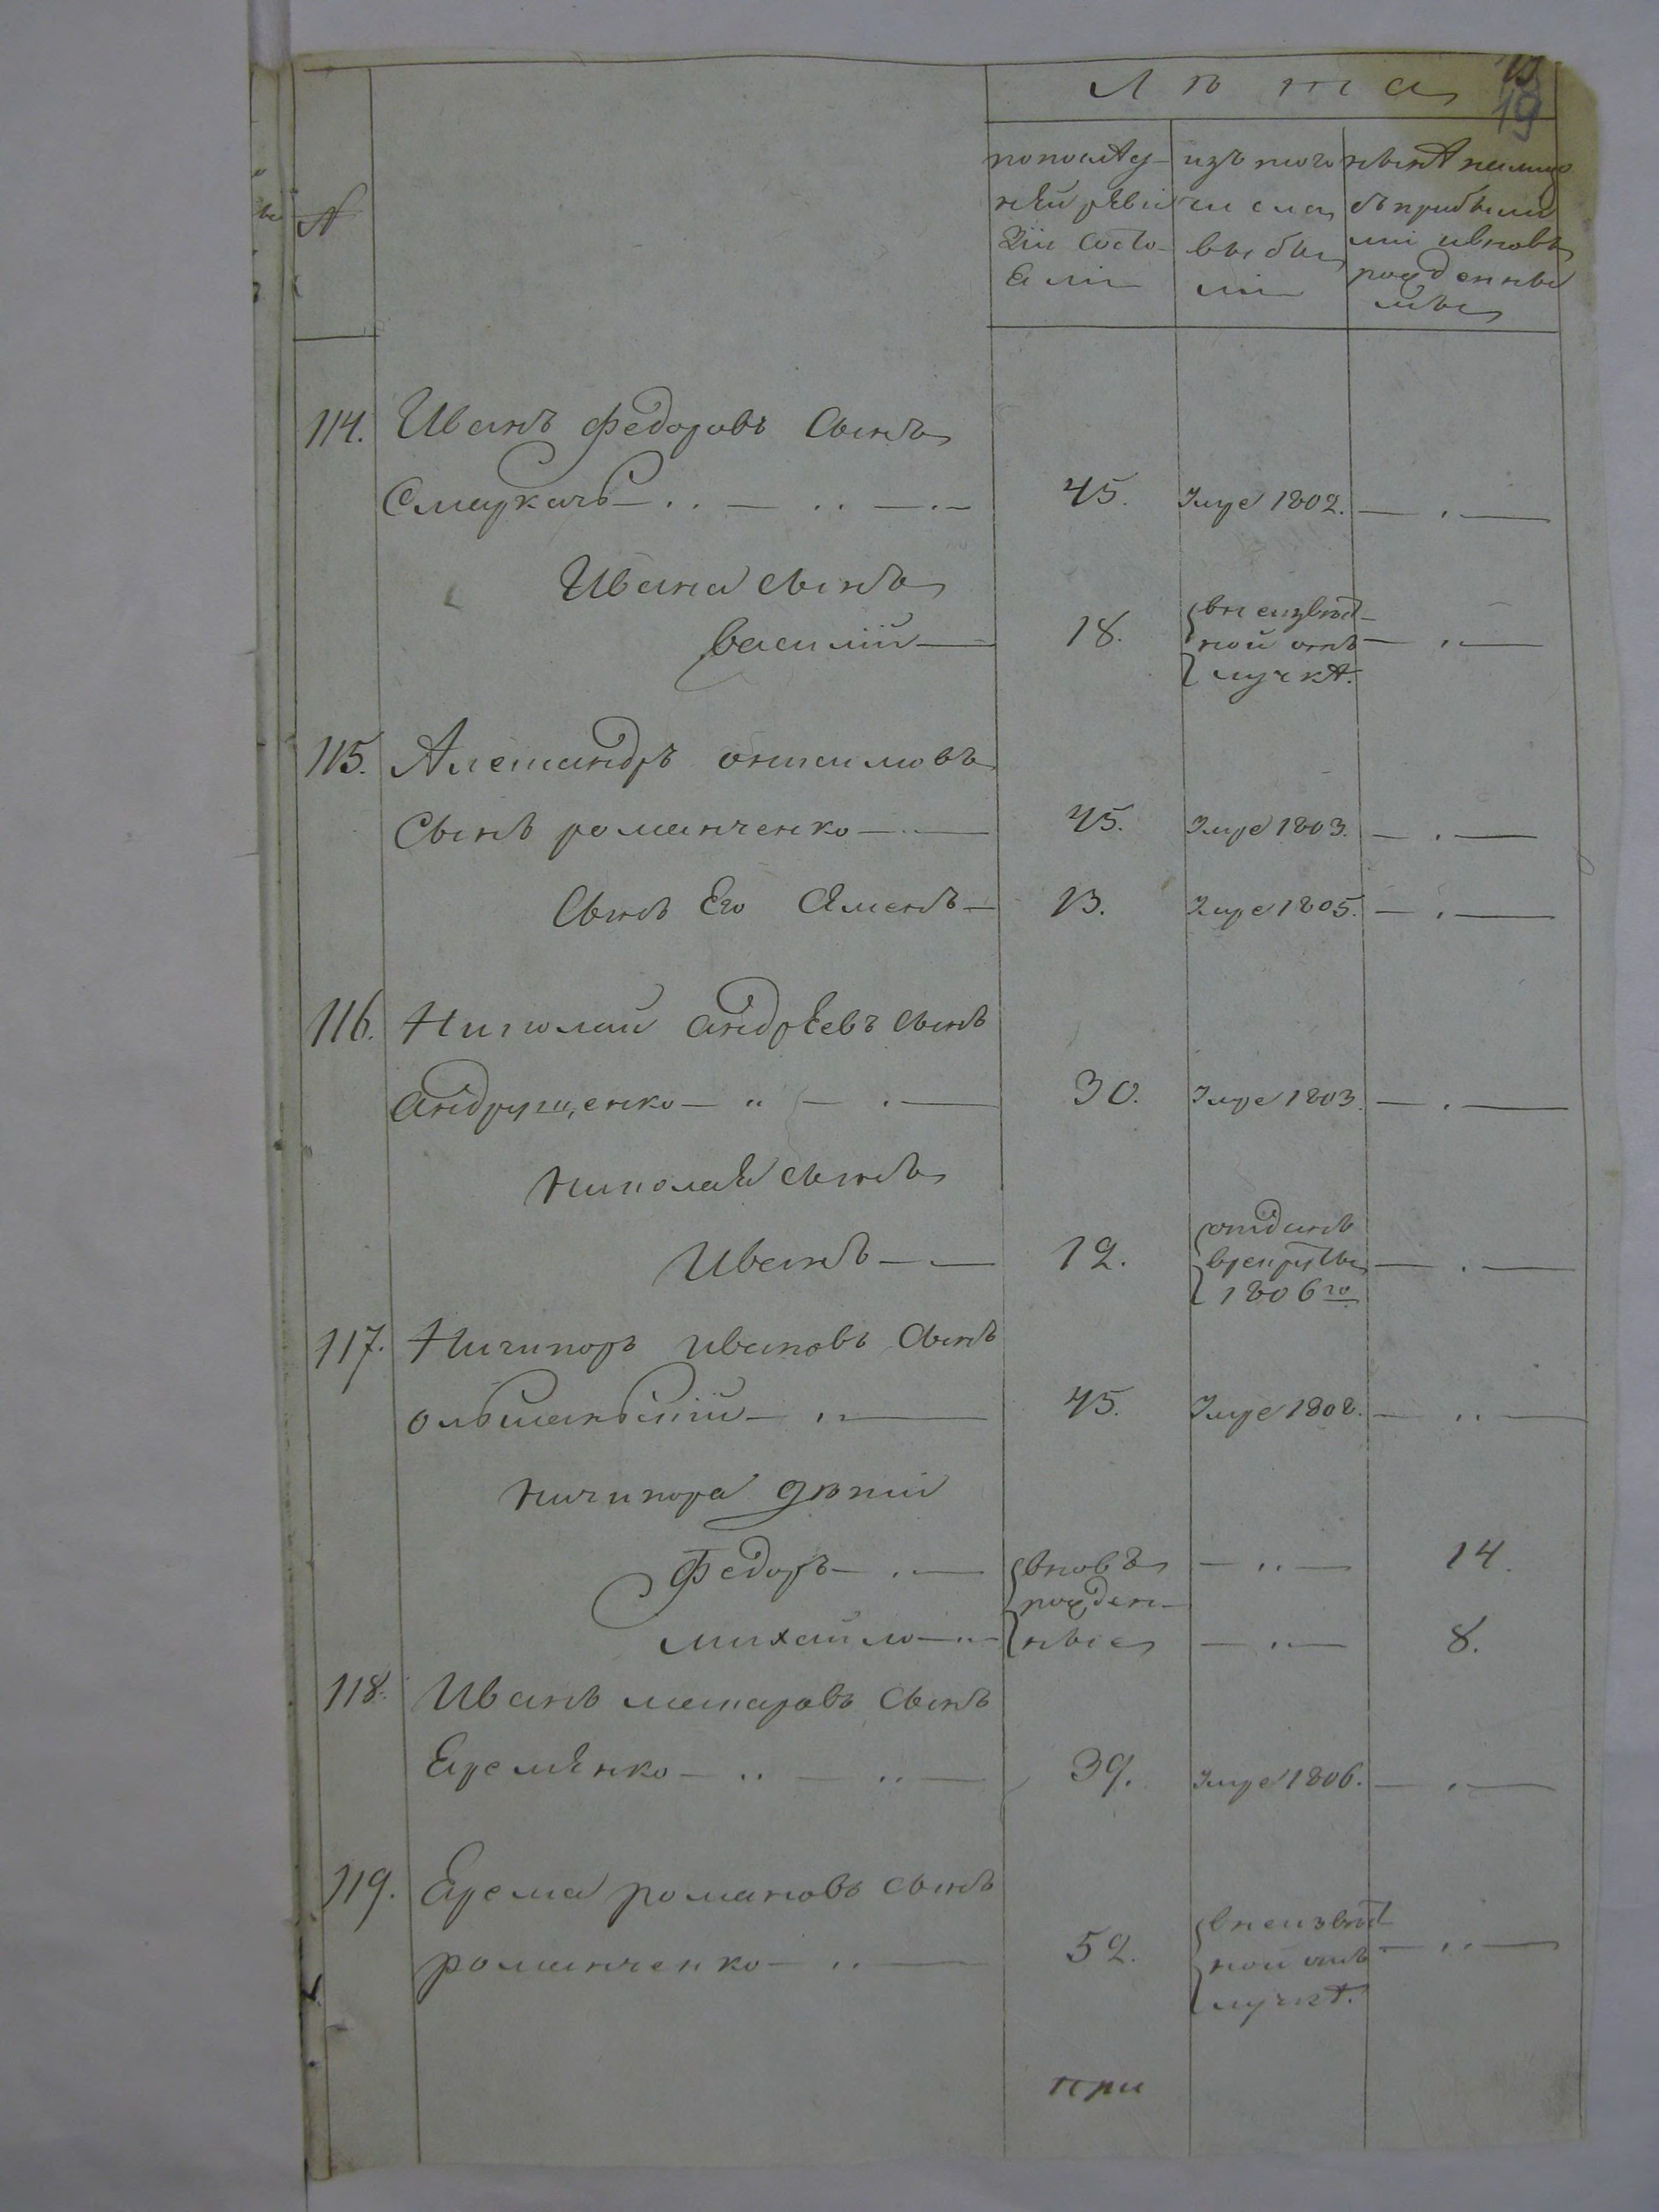 19
Лѣта
№
попослѣд-
нѣй рѣви
зіи состо-
яли
изъ того
числа
выбы
ли
нынѣ налицо
съ прибылы
ми ивновь
рожденны
мы
114. Иванъ Федоровъ Сынъ
45. Умре 1802.
Ивана сынъ
василій 18. внеизвѣст-
ной отъ
лучкѣ.
115. Александръ онисимовъ
Сынъ романченко 45. Умре 1803.
Сынъ Его Семенъ 13. Умре 1805.
116. Николай андрѣевъ сынъ
андрущенко 30. Умре 1803.
Николая сынъ
Иванъ 12. отданъ
врекруты
1806го
117. Ничипоръ ивановъ сынъ
ольшанский 45. Умре 1808.
Ничипора дѣти
Федоръ вновь 14.
рожден-
михайло ные 8.
118. Иванъ макаровъ сынъ
Еремѣнко 39. Умре 1806.
119. Ерема романовъ сынъ
романченко 52. внеизвѣст
ной отъ
лучкѣ.
при